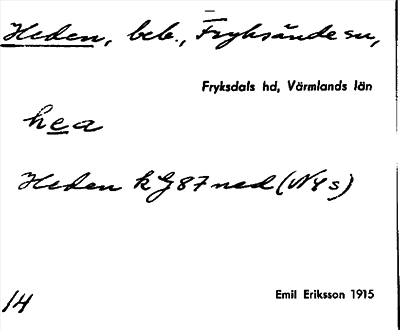 Heden, beb., Fryksände sn,
Fryksdals hd, Värmlands län
hea
Heden kG87ned (N4s)
14
Emil Eriksson 1915